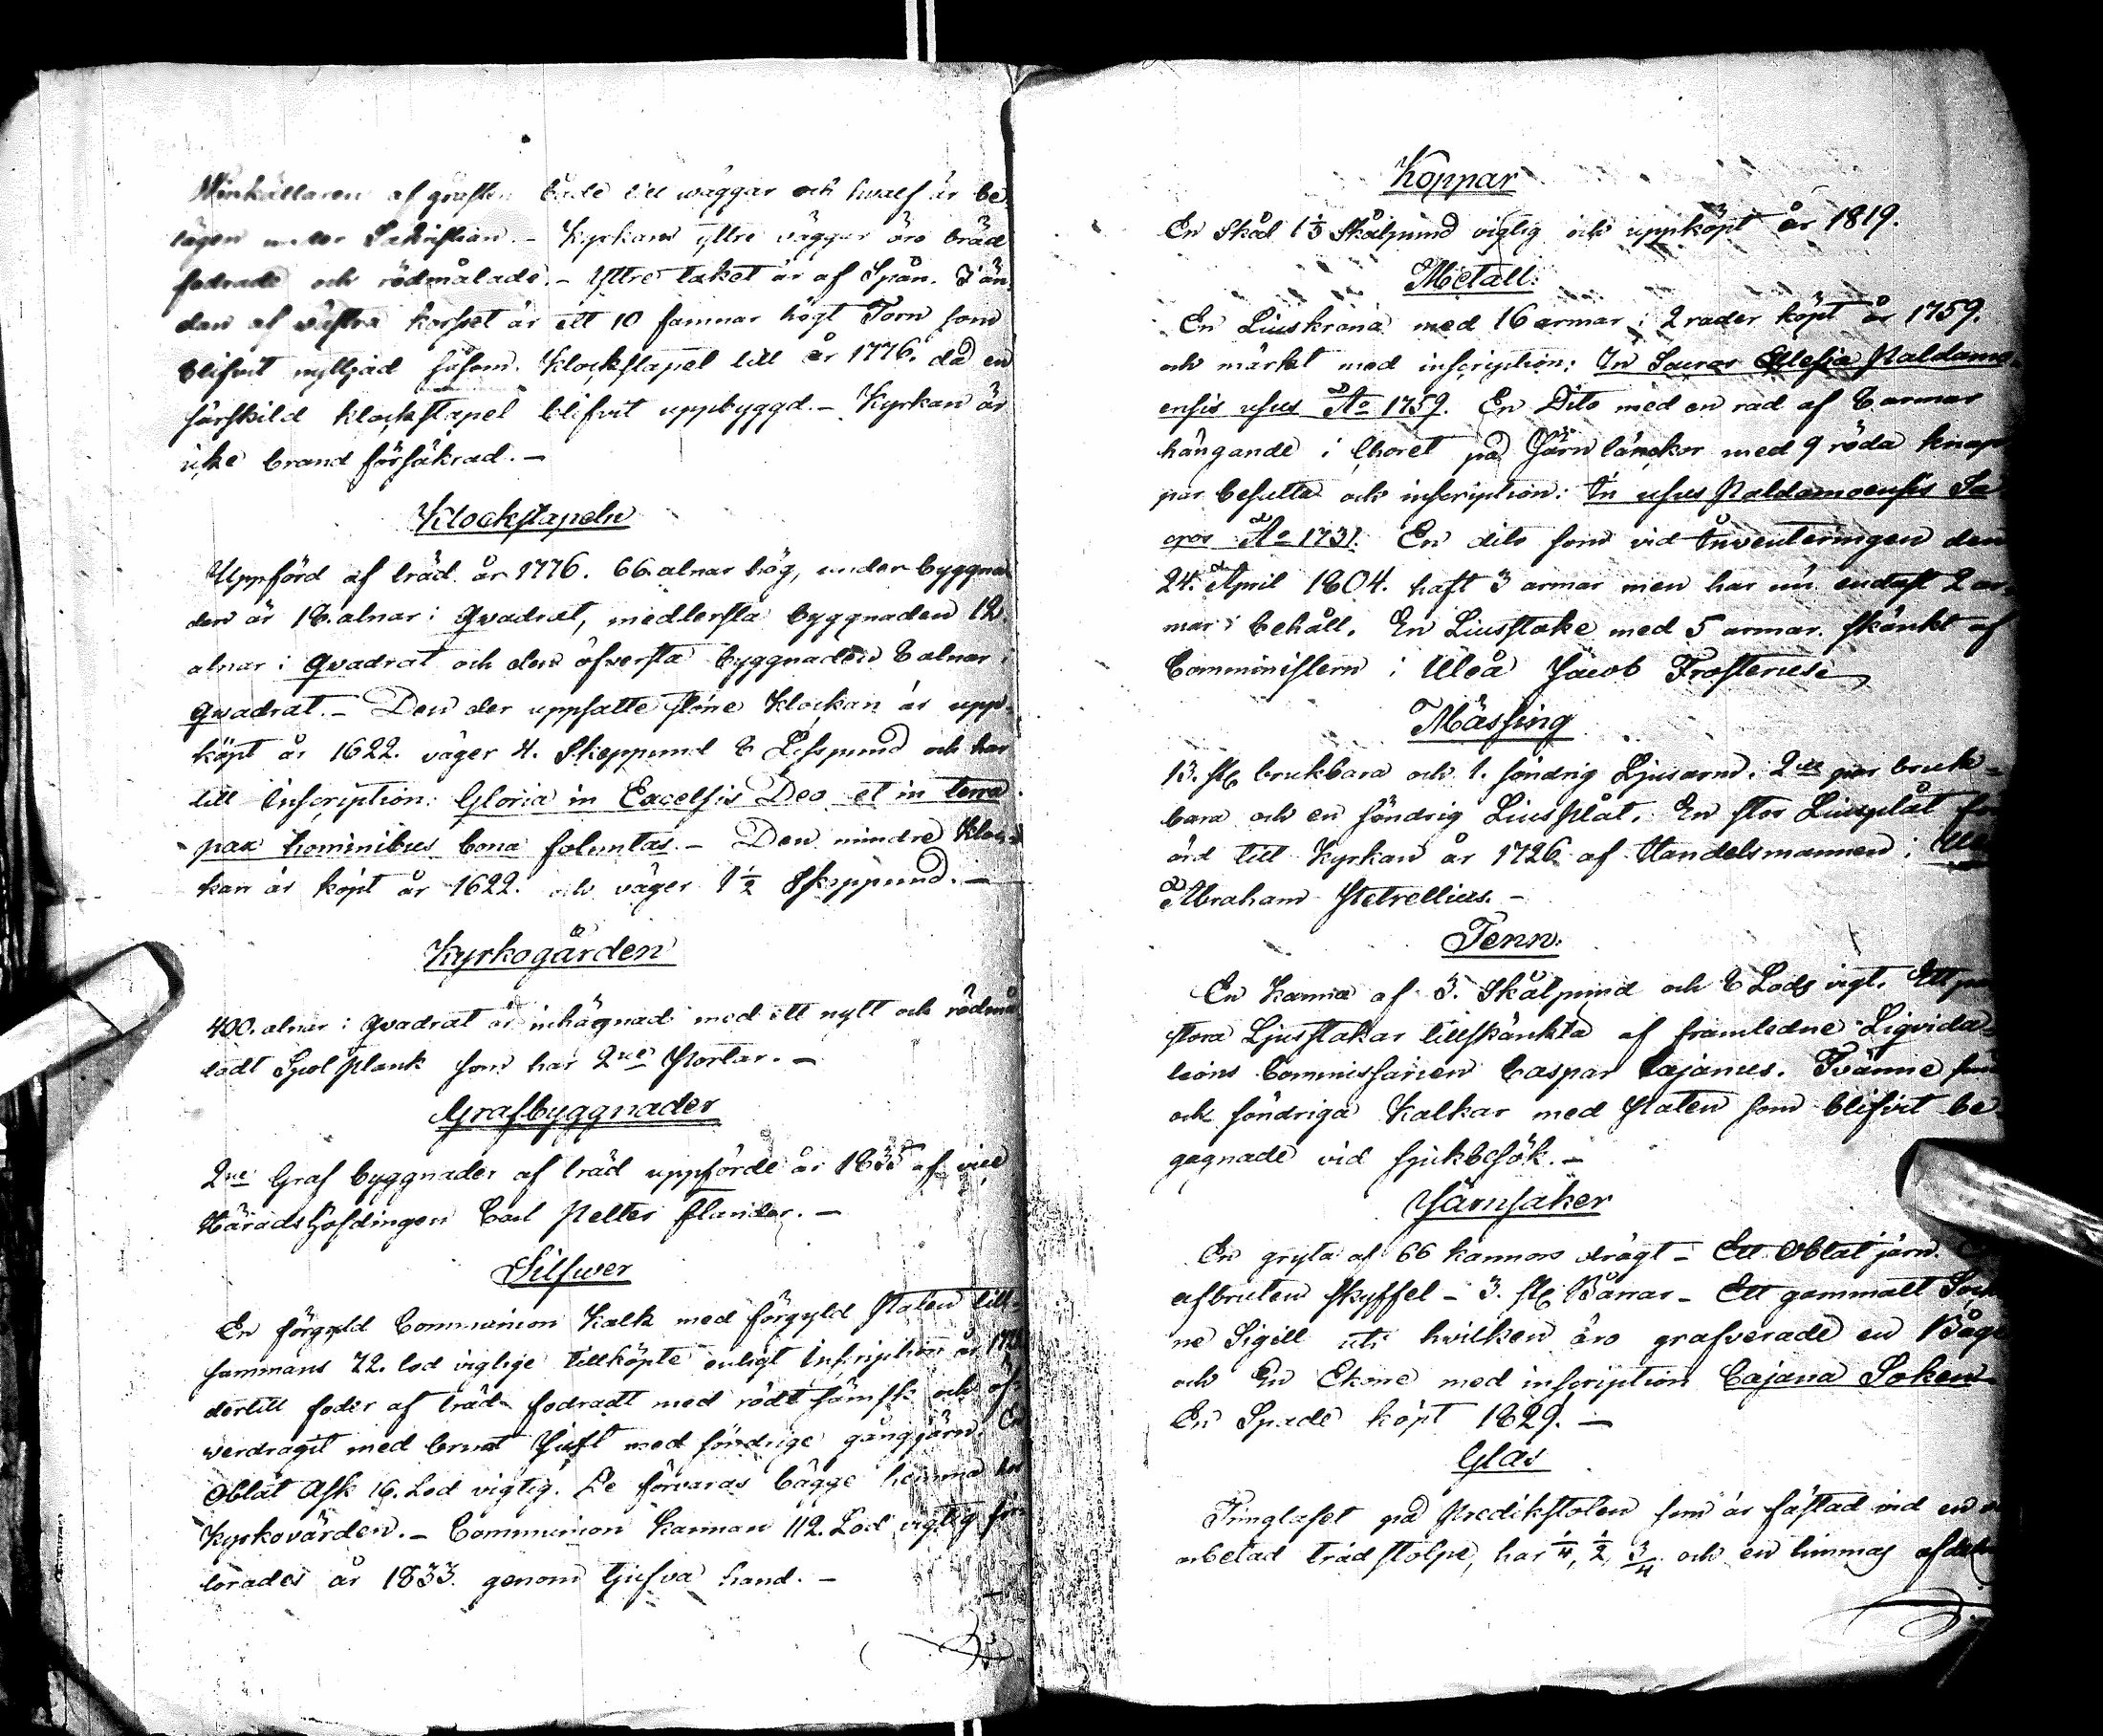 Winkällaren af gråsten både till wäggar och hwalf är be
lägen under Sakristian. - Kyrkans yttre väggar äro bräd
fodrade och rödmålade. - Yttre taket är af Spån. I än-
dan af västra korset är ett 10 famnar högt Torn som
blifvit nyttjad såsom Klockstapel till år 1776. då en
särskild klockstapel blifvit uppbyggd. - Kyrkan är
icke brand försäkrad. -
Klockstapeln
Uppförd af träd år 1776. 66 alnar hög, under byggna
den är 18. alnar i qvadrat, medlersta byggnaden 12.
alnar i qvadrat och den öfversta byggnaden 8 alnar i
qvadrat. - Den der uppsatte störe Klockan är upp-
köpt år 1622. väger 4. Skeppund 8 Lispund och har
till Inscription: Gloria in Excelsis Deo et in terra
pax hominibus bona foluntas. - Den mindre Kloc-
kan är köpt år 1622. och väger 1 1/2 Skeppund. -
Kyrkogården
400. alnar i qvadrat är inhägnad med ett nytt och rödmå
ladt Spol plank som har 2ne Portar. -
Grafbyggnader
2ne Graf byggnader af träd uppförde år af vice
Häradshöfdingen Carl Petter Elander. -
Silfwer
En förgyld Communion Kalk med förgyld Paten till-
sammans 72. lod vigtige tillköpte enligt Inscription år
dertill foder af träd fodradt med rödt sämsk och öf-
werdragit med brunt Juft med söndrige gångjärn. En
Oblat Ask 16. Lod vigtig. De förvaras bägge hemma hos
Kyrkovärden. - Communion Kannan 112. Lod vigtig för-
lorades år 1833. genom tjufva hand. -
Koppar
En Skål 1 1/3 Skålpund vigtig och uppköpt år 1819.
Metall.
En Liuskrona med 16 armar i 2 rader köpt år 1759.
och märkt med inscription: In Sacros Ecclesiæ Paldamo-
ensis usus Ao 1759. En Dito med en rad af 8 armar
hängande i Choret på Järn länckor med 9 röda knap
par besatta och inscription: In usus Paldamoensis Sa
cros Ao 1731. En dito som vid Inventeringen den
24. April 1804. haft 3 armar men har nu endast 2 ar-
mar i behåll. En Liusstake med 5 armar skänkt af
Comministern i Uleå Jacob Frosterus.
Mässing
13. st. brukbara och 1. söndrig Ljusarm. 2ne par bruk-
bara och en söndrig Liusplåt. En stor Liusplåt för
ärd till Kyrkan år 1726 af Handelsmannen i
Abraham
Tenn.
En Kanna af 3. Skålpund och 8 Lods vigt. Ett par
stora Ljusstakar tillskänkta af framledne Liqvida-
tions Commissarien Caspar Cajanus. Tvänne små
och söndriga Kalkar med Paten som blifvit be
gagnade vid sjukbesök. -
Järnsaker
En gryta af 66 kannors drägt - Ett Oblat järn.
afbruten skyffel - 3. st. Bårrar - Ett gammalt Sock
ne Sigill uti hvilken äro grafverade en Båge
och En Ekorre med inscription Cajana Soken
En Spade köpt 1829. -
Glas
Timglaset på Predikstolen som är fästad vid en
arbetad träd stolpe, har 1/4, 1/2, 3/4 och en timmas